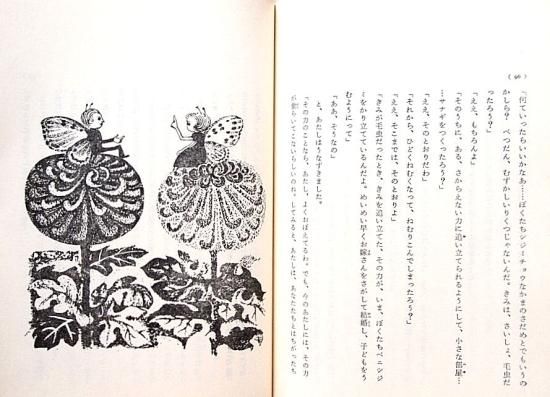 (46)
「何ていったらいいかなあ……ぼくたちシジミチョウなかまのさだめとでもいうの
かしら？　べつだん、むずかしいりくつじゃないんだ。きみは、さいしょ、毛虫だ
ったろう？」
「ええ、もちろんよ」
「そのうちに、ある、さからえない力に追い立てられるようにして、小さな部屋…
…サナギをつくったろう？」
「ええ、そのとおりだわ」
「それから、ひどくねむくなって、ねむりこんでしまったろう？」
「ええ、そこまでは、そのとおりよ」
「きみが毛虫だったとき、きみを追い立てた、その力が、いま、ぼくたちベニシジ
ミをかり立てているんだよ。めいめい早くお嫁さんをさがして結婚し、子どもをう
むようにって」
「ああ、そうなの」
と、あたしはうなずきました。
「その力のことなら、あたし、よくおぼえてるわ。でも、今のあたしには、その力
が働らいてこないらしいのね。してみると、あたしは、あなたたちとはちがったち